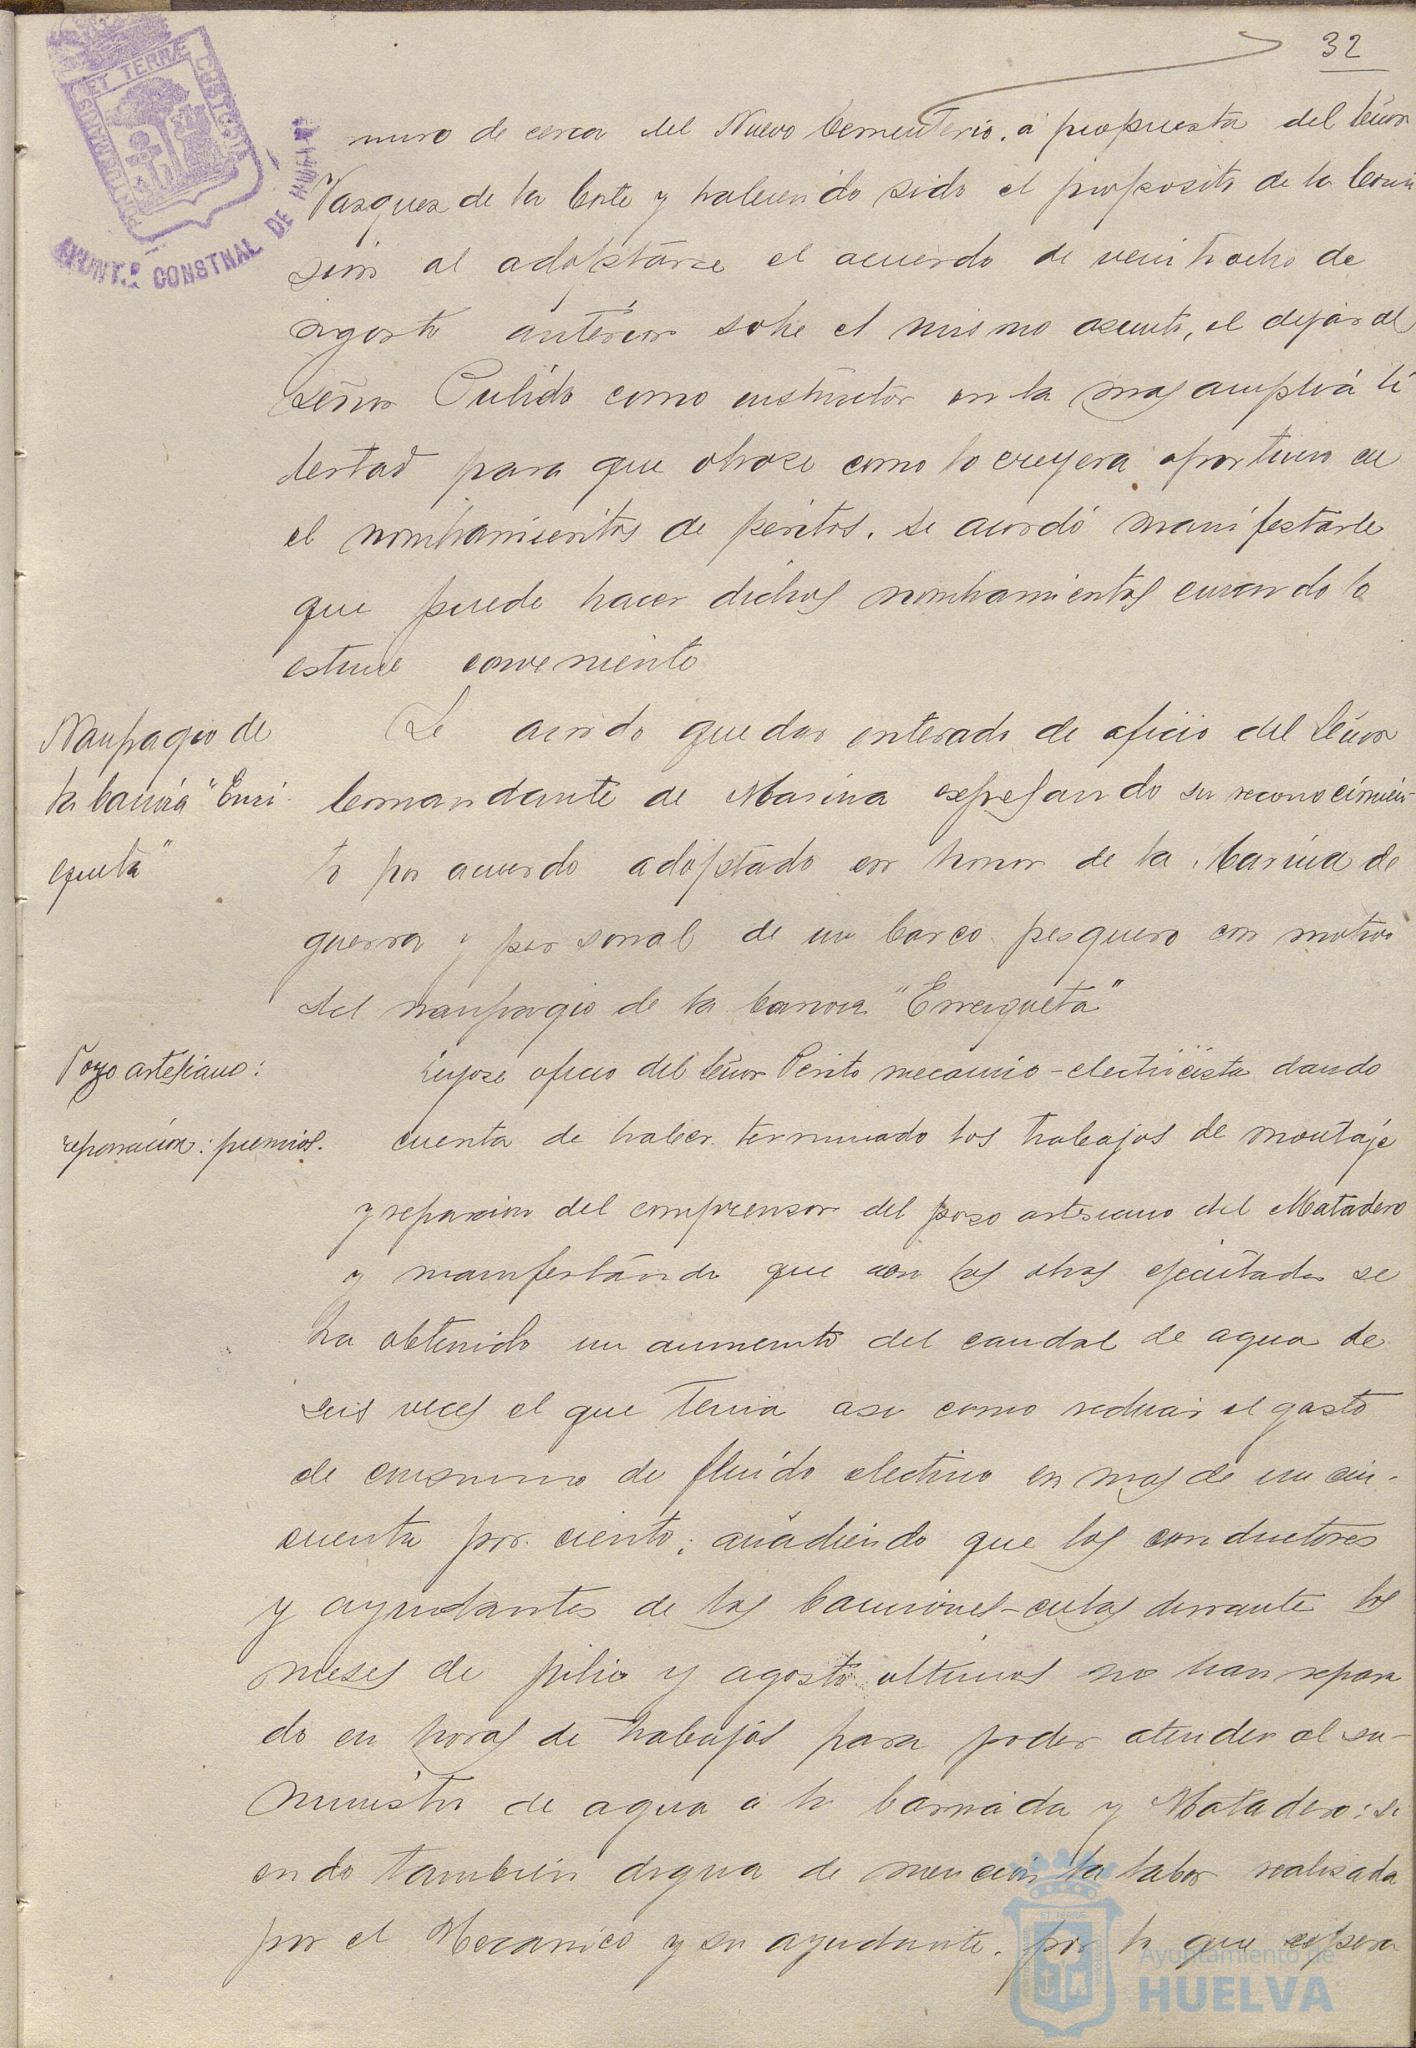 32
PORTUS MARIS ET TERRÆ CUSTODIA
AYUNT.º CONSTNAL DE HUELVA
muro de cerca del Nuevo Cementerio, á propuesta del Señor
Vazquez de la Corte y habiendo sido el proposito de la Comi
sion al adoptarse el acuerdo de veintiocho de
agosto anterior sobre el mismo asunto, el dejar al
señor Pulido como instructor en la mas amplia li
bertad para que obrase como lo creyera oportuno en
el nombramientos de peritos, se acordó manifestarle
que puede hacer dichos nombramientos cuando lo
estime conveniente
Naufragio de
la canoa "Enri-
queta"
Se acordo quedar enterado de oficio del Señor
Comandante de Marina expresando su reconocimien-
to por acuerdo adoptado en honor de la Marina de
guerra y personal de un barco pesquero con motivo
del naufragio de la canoa "Enriqueta"
Pozo artesiano:
reparación: premios.
Leyose oficio del Señor Perito mecanico-electricista dando
cuenta de haber terminado los trabajos de montaje
y reparacion del comprensor del pozo artesiano del Matadero
y manifestando que con las obras ejecutadas se
ha obtenido un aumento del caudal de agua de
seis veces el que tenia asi como reducir el gasto
de consumo de fluido electrico en mas de un cin-
cuenta por ciento; añadiendo que los conductores
y ayudantes de los camiones-cubas durante los
meses de julio y agosto ultimos no han repara
do en horas de trabajos para poder atender al su-
ministro de agua a la barriada y Matadero: si
endo tambien digna de mencion la labor realizada
por el Mecanico y su ayudante, por lo que espera
Ayuntamiento de
HUELVA